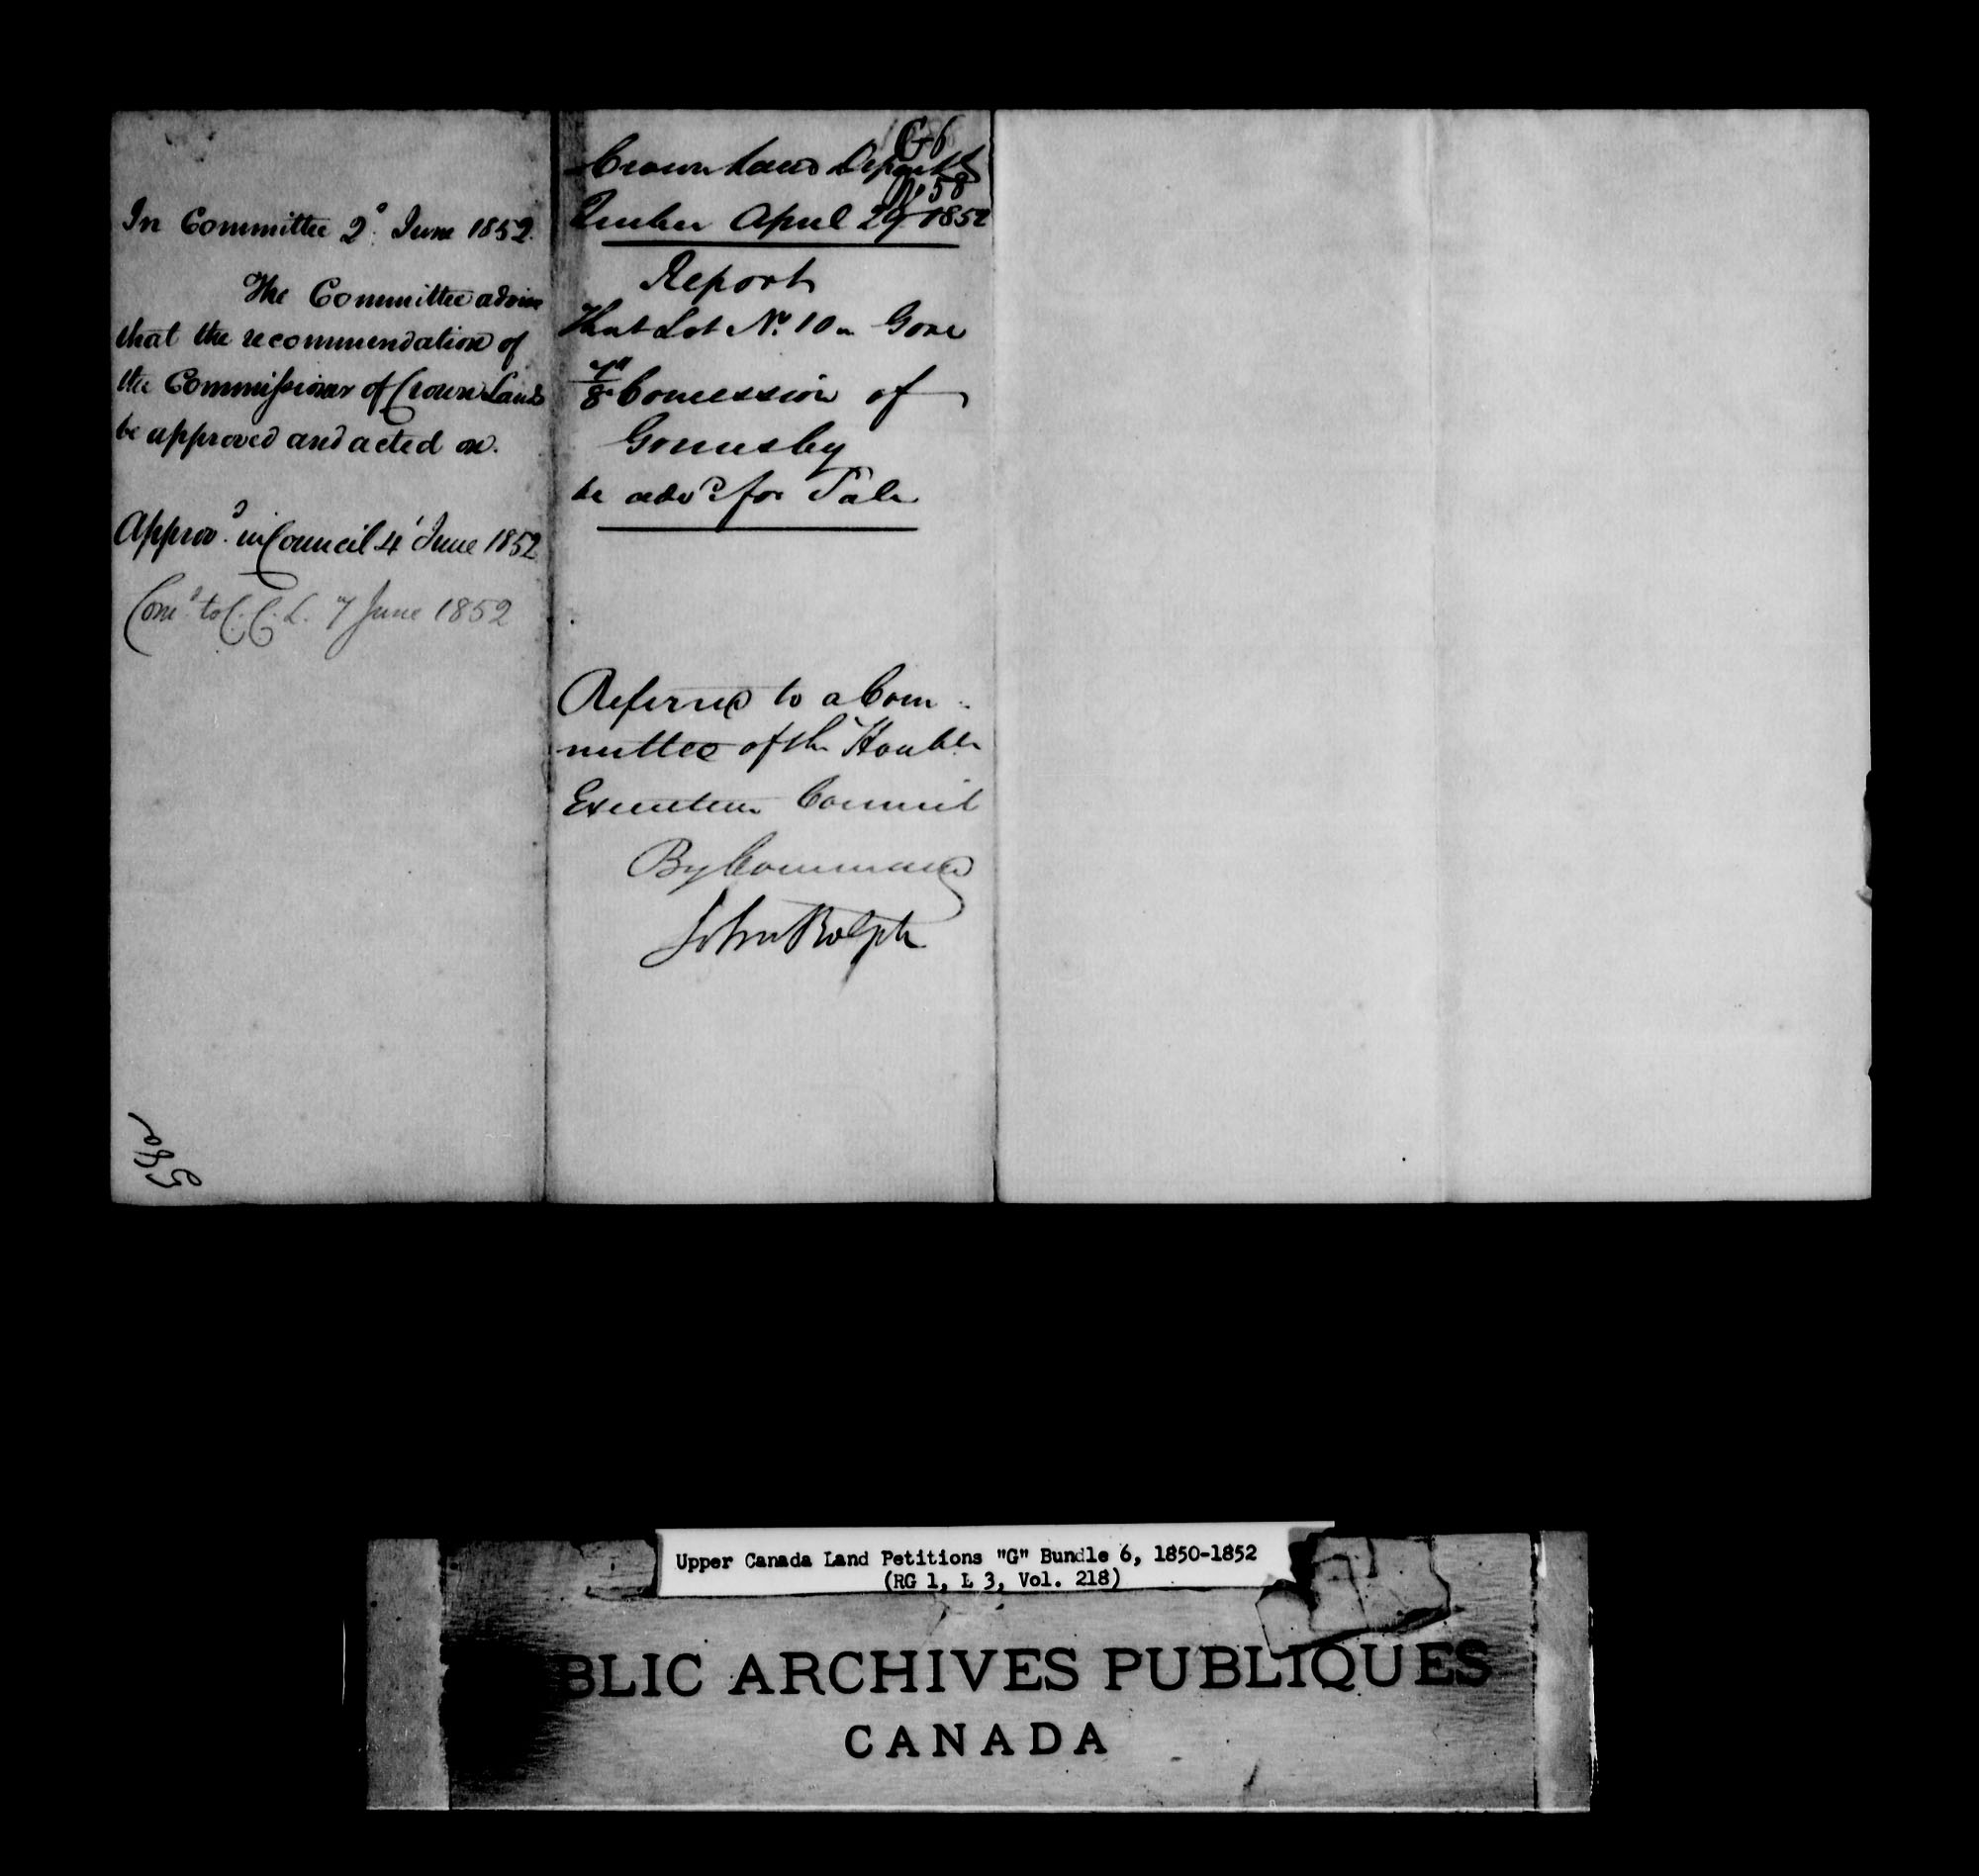 In Committee 2d June 1852.
The Committee advise
that the recommendation of
the Commissioner of Crown Lands
be approved and acted on.
Approvd in Council 4 June 1852
Comd to C.C.L. 7 June 1852
G6
Crown Land Departt
No 58
Quebec April 29 1852
Report
That Lot No. 10 in Gore
7th/8th Concession of
be advd for Sale
Referred to a Com-
mittee of the Honble
Executive Council
By Command
John Rolph
Upper Canada Land Petitions "G" Bundle 6, 1850-1852
(RG 1, L 3, Vol. 218)
BLIC ARCHIVES PUBLIQUES
CANADA